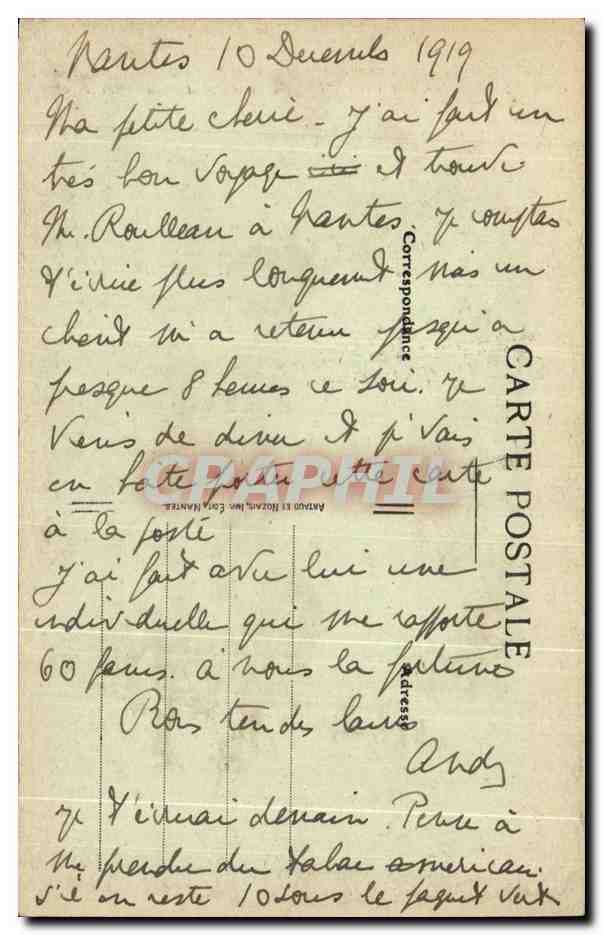 Nantes 10 Decembre 1919
Ma petite cherie - J'ai fait un
très bon voyage et trouvé
Mr. Roulleau à Nantes. Je comptais
t'écrire plus longuement mais un
client m'a retenu jusqu'a
presque 8 heures ce soir. Je
viens de diner et je vais
en hate porter cette carte
à la poste
J'ai fait avec lui une
individuelle qui me rapporte
60 francs. à nous la fortune
Bons tendres baisers
André
Je t'écrirai demain. Pense à
me prendre du tabac americain
s'il en reste 10 sous le paquet vert
CARTE POSTALE
Correspondance
Adresse
ARTAUD ET NOZAIS, IMP. EDIT., NANTES
CRAPHIL